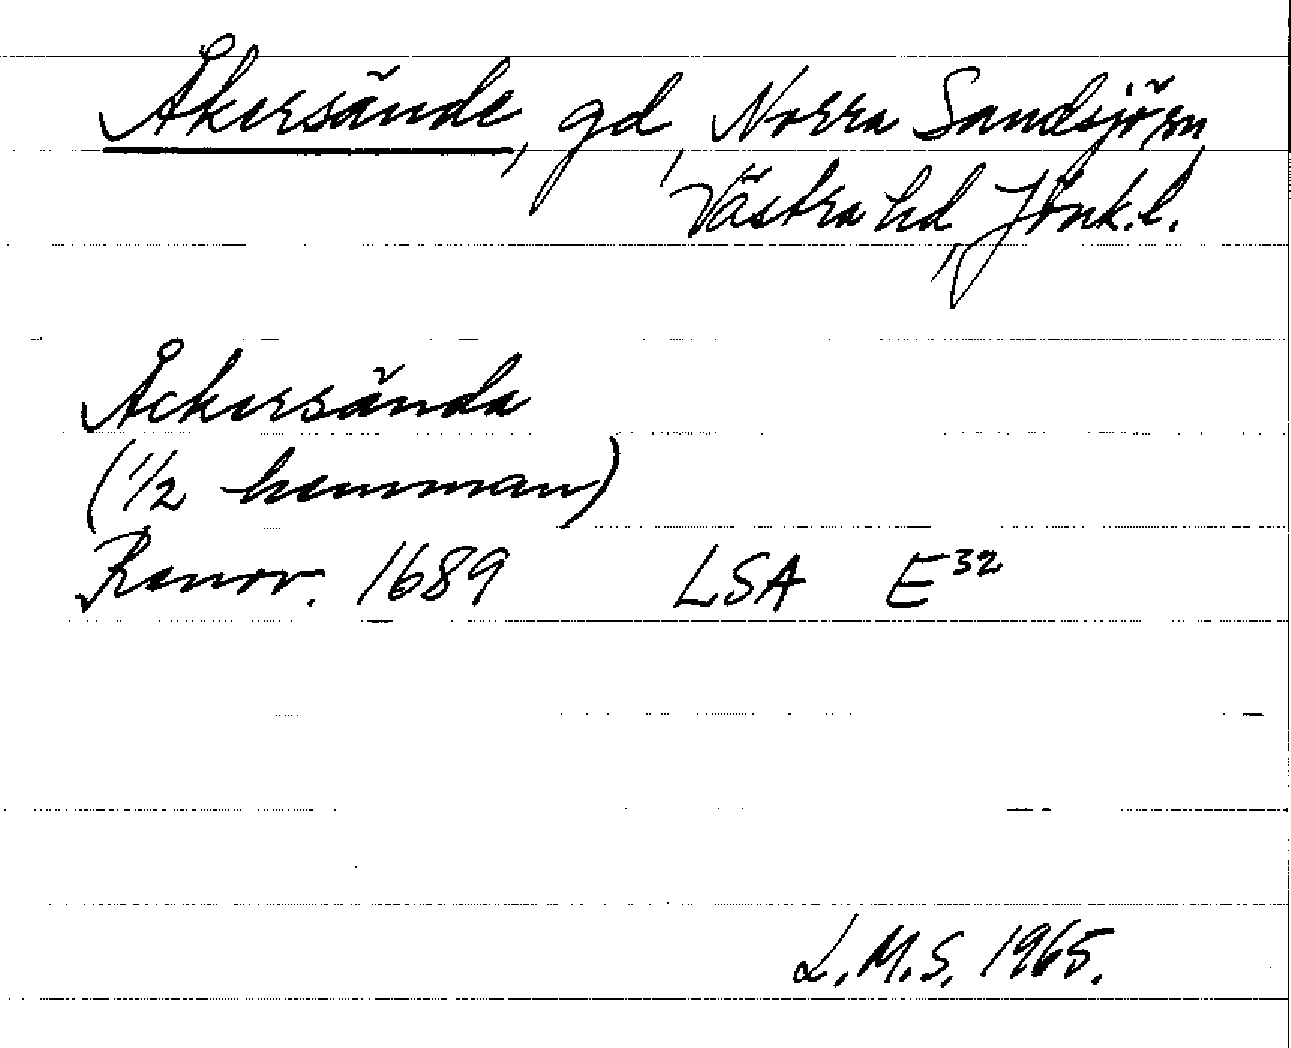 Åkersände, gd, Norra Sandsjö sn,
Västra hd, Jönk.l.
Åckersända
(1/2 hemman)
Ranov. 1689 LSA E³²
L.M.S. 1965.